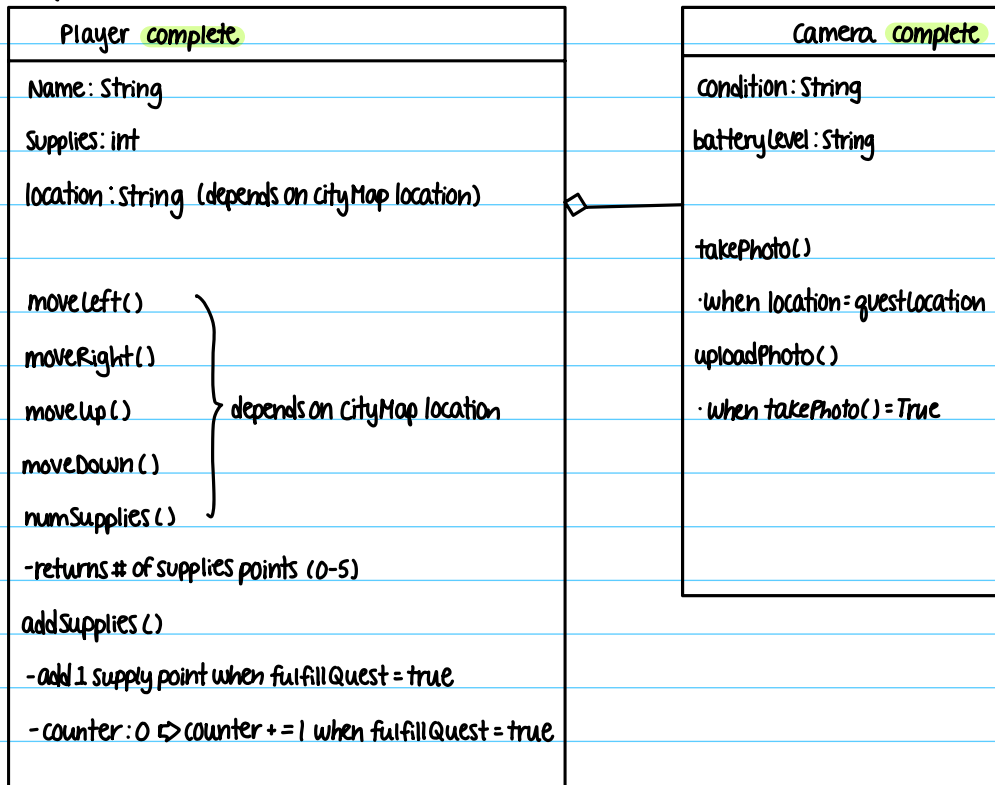 Player complete
Name: String
Supplies: int
location: String (depends on cityMap location)
moveLeft()
moveRight()
moveUp()
moveDown()
numSupplies()
depends on cityMap location
-returns # of supplies points (0-5)
addSupplies()
-add 1 supply point when fulfillQuest = true
-counter: 0 ⇨ counter += 1 when fulfillQuest = true
Camera complete
condition: String
batteryLevel: String
takePhoto()
·when location = questLocation
uploadPhoto()
·when takePhoto() = True